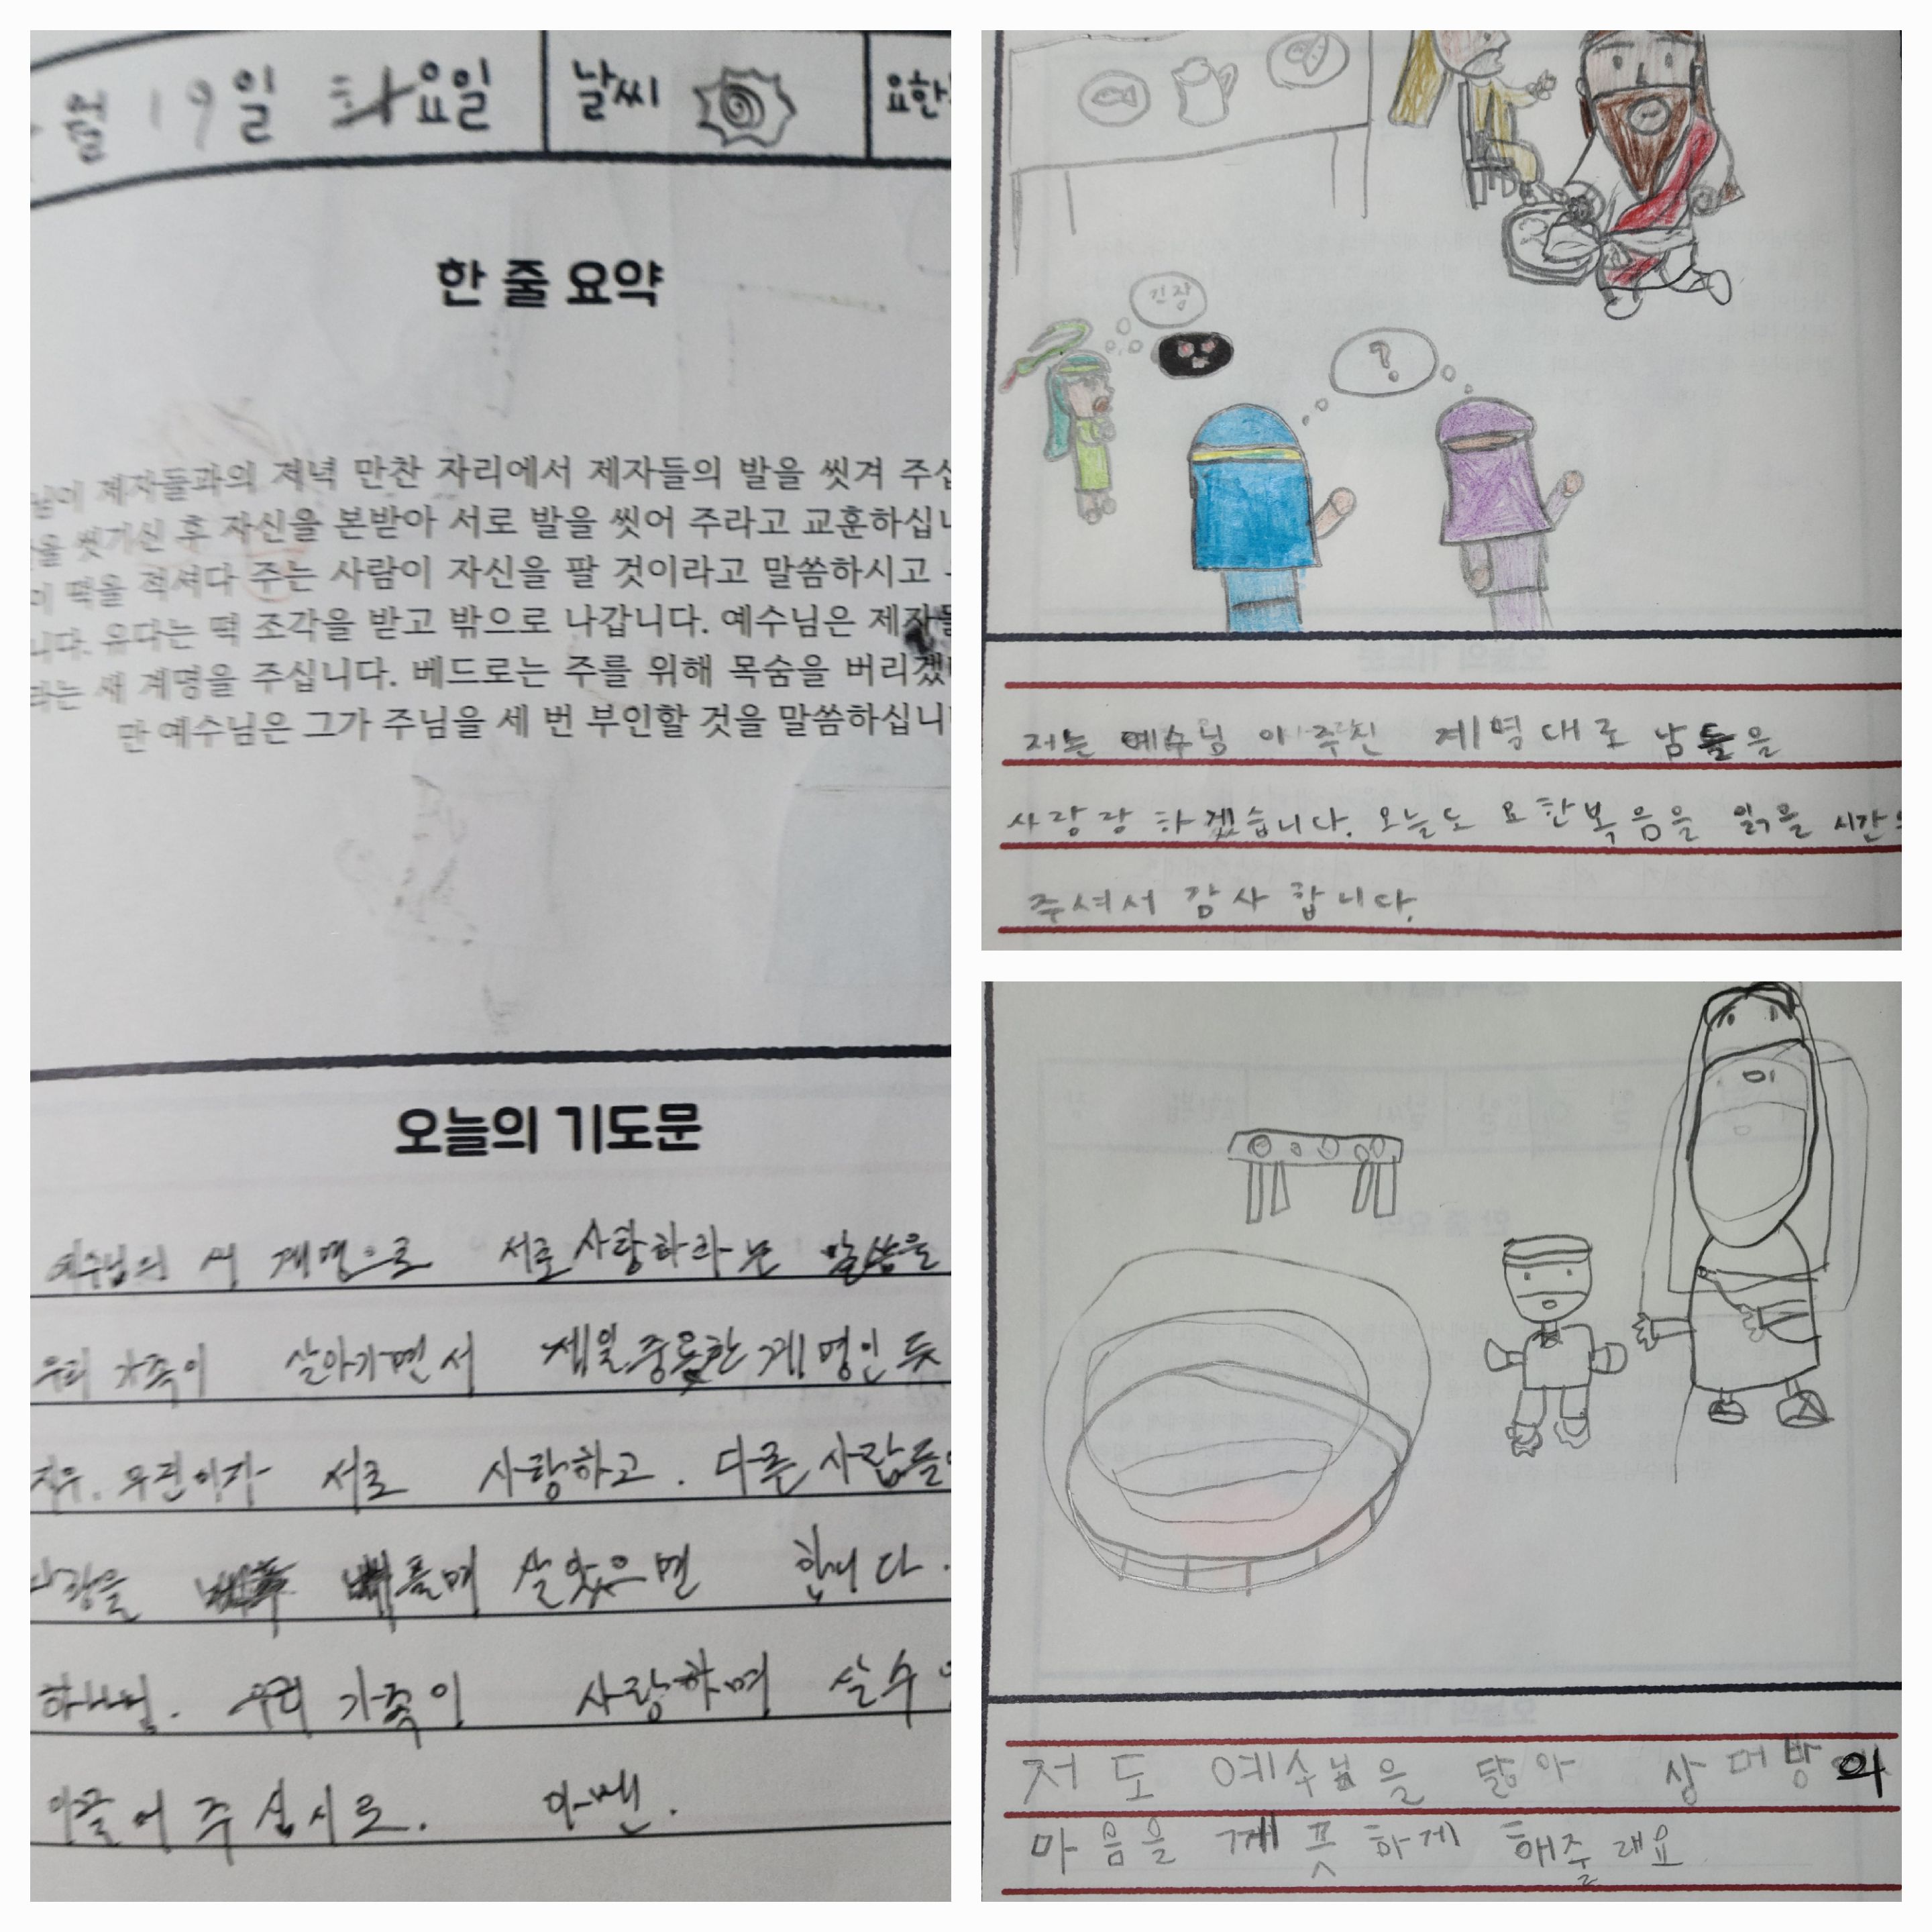 월 19일 화요일
날씨
요한
한 줄 요약
제자들과의 저녁 만찬 자리에서 제자들의 발을 씻겨 주십
씻기신 후 자신을 본받아 서로 발을 씻어 주라고 교훈하십니
떡을 적셔다 주는 사람이 자신을 팔 것이라고 말씀하시고
니다. 유다는 떡 조각을 받고 밖으로 나갑니다. 예수님은 제자들
라는 새 계명을 주십니다. 베드로는 주를 위해 목숨을 버리겠
만 예수님은 그가 주님을 세 번 부인할 것을 말씀하십니
오늘의 기도문
예수님의 새 계명으로 서로 사랑하라는 말씀을
우리 가족이 살아가면서 제일 중요한 계명인 듯
서로 사랑하고. 다른 사람들
사랑을 베풀며 살았으면 합니다.
하나님. 우리 가족이 사랑하며 살수
이끌어 주십시오. 아멘.
긴장
?
저는 예수님이 주신 계명대로 남들을
사랑랑 하겠습니다. 오늘도 요한복음을 읽을 시간
주셔서 감사합니다.
저도 예수님을 닮아 상대방의
마음을 깨끗하게 해줄래요